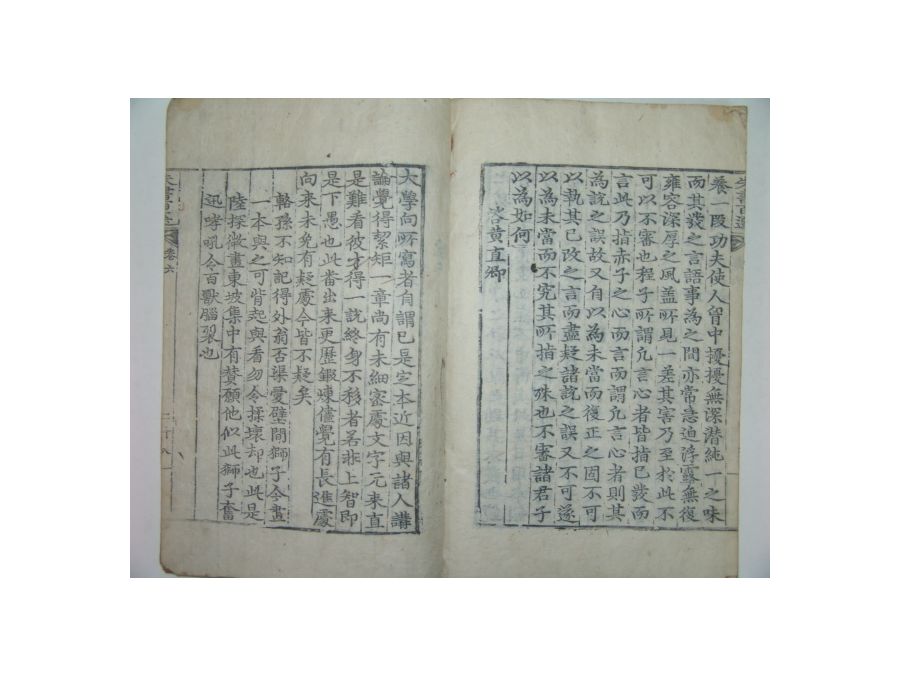 朱書百選
養一段功夫使人胷中擾擾無深潛純一之味
而其發之言語事為之間亦常急迫浮露無復
雍容深厚之風盖所見一差其害乃至於此不
可以不審也程子所謂凡言心者皆指已發而
言此乃指赤子之心而言而謂凡言心者則其
為說之誤故又自以為未當而復正之固不可
以執其已改之言而盡疑諸說之誤又不可遂
以為未當而不究其所指之殊也不審諸君子
以為如何
答黃直卿
大學向所寫者自謂已是定本近因與諸人講
論覺得絜矩一章尚有未細密處文字元來直
是難看彼才得一說終身不移者若非上智即
是下愚也此番出來更歷鍛煉儘覺有長進處
向來未免有疑處今皆不疑矣
輅孫不知記得外翁否渠愛壁間獅子今畫
一本與之可背起與看勿令揉壞却也此是
陸探微畫東坡集中有贊願他似此獅子奮
迅哮吼令百獸腦裂也
朱書百選
卷六